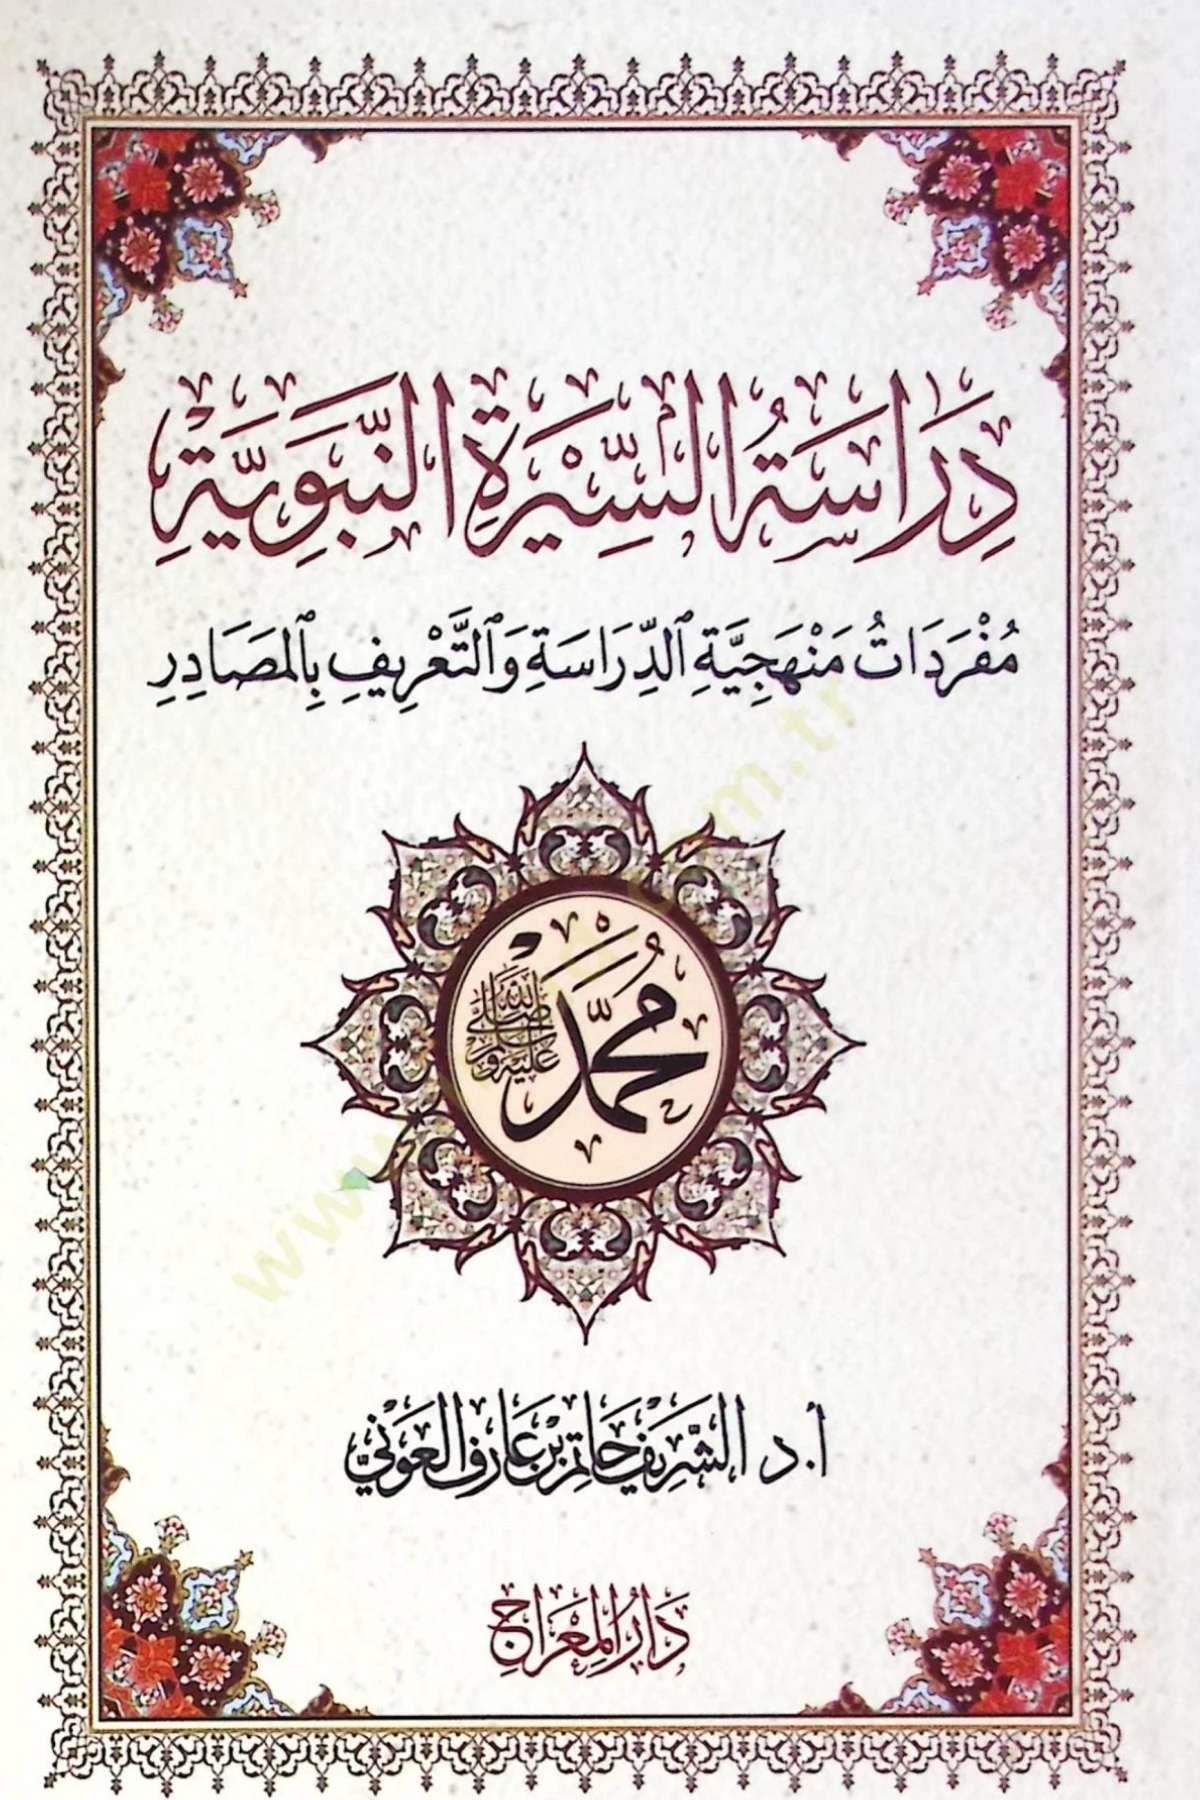 دِرَاسَةُ السِّيْرَةِ النَّبَوِيَّةِ
مُفْرَدَاتُ مَنْهَجِيَّةِ الدِّرَاسَةِ وَالتَّعْرِيفِ بِالمَصَادِرِ
مُحَمَّد
صلى الله عليه وسلم
أ.د الشَّرِيْف حَاتِم بْن عَارِف العَوْنِيّ
دَارُ المِعْرَاجِ